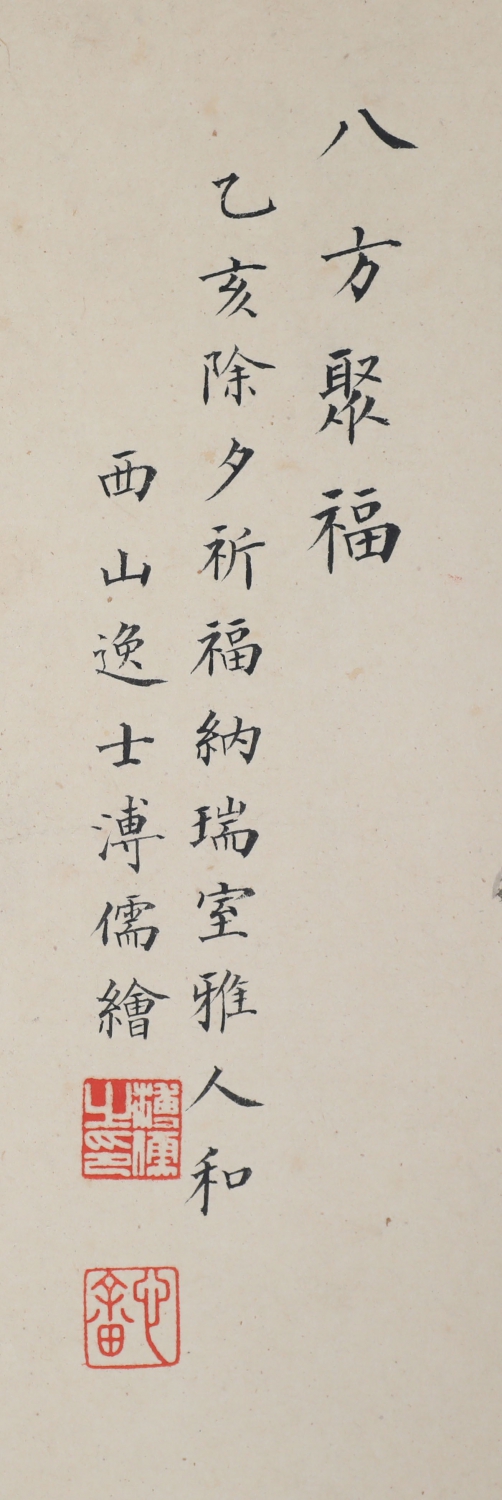 八方聚福
乙亥除夕祈福納瑞室雅人和
西山逸士溥儒繪
溥儒之印
心畬